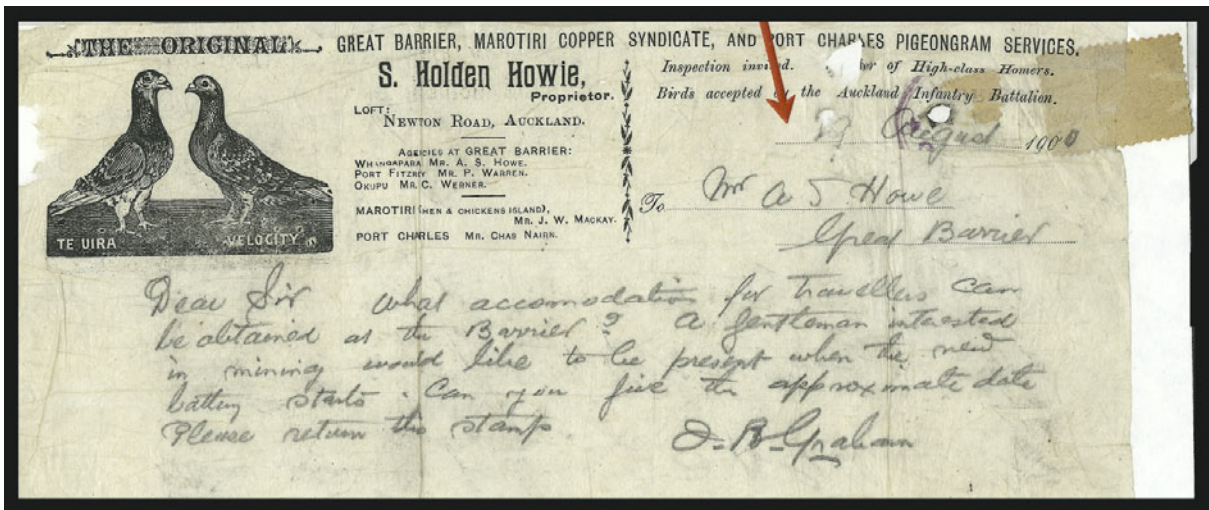 THE ORIGINAL
GREAT BARRIER, MAROTIRI COPPER SYNDICATE, AND PORT CHARLES PIGEONGRAM SERVICES.
S. Holden Howie,
Proprietor.
LOFT:
NEWTON ROAD, AUCKLAND.
AGENCIES AT GREAT BARRIER:
WHANGAPARA MR. A. S. HOWE.
PORT FITZRIY MR. P. WARREN.
OKUPU MR. C. WERNER.
MAROTIRI (HEN & CHICKENS ISLAND),
MR. J. W. MACKAY.
PORT CHARLES MR. CHAS NAIRN.
TE UIRA
VELOCITY
Inspection invited. of High-class Homers.
Birds accepted the Auckland Infantry Battalion.
19 August 1900
To Mr A S Howe
Great Barrier
Dear Sir what accomodation for travellers can
be obtained at the Barrier? A gentleman interested
in mining would like to be present when the new
battery starts. Can you give the approximate date
Please return this stamp.
Graham